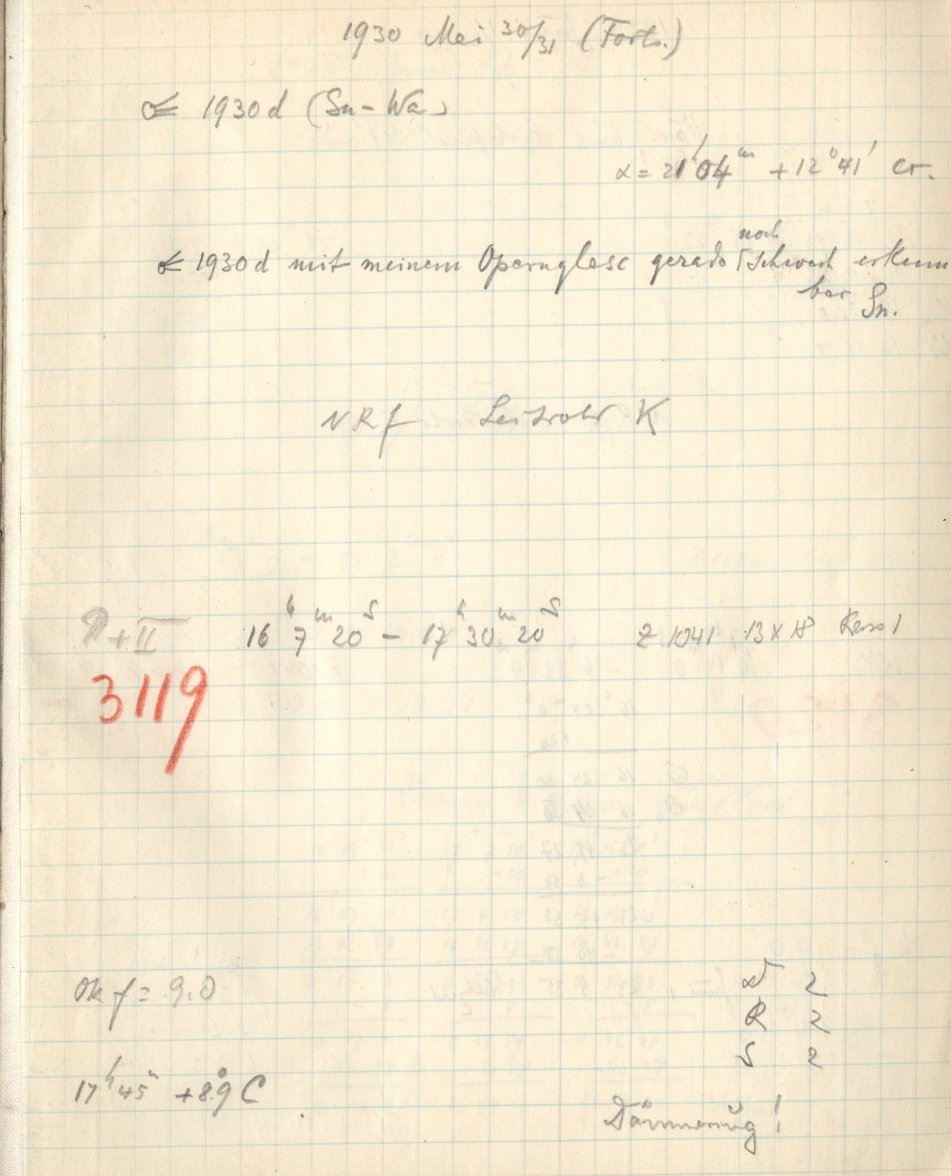 1930 Mai 30/31 (Forts.)
☄ 1930 d (Sn-Wa)
α = 21ʰ04ᵐ +12°41' cr.
☄ 1930 d mit meinem Opernglase gerade noch schwach erkenn
bar Sn.
NRf Leitrohr K
+ II 16ʰ 7ᵐ 20ˢ – 17ʰ 30ᵐ 20ˢ Z 1041 13 x 18
3119
Ok f = 9.0
2
R 2
S 2
17ʰ45ᵐ +8.°9 C
Dämmerung!